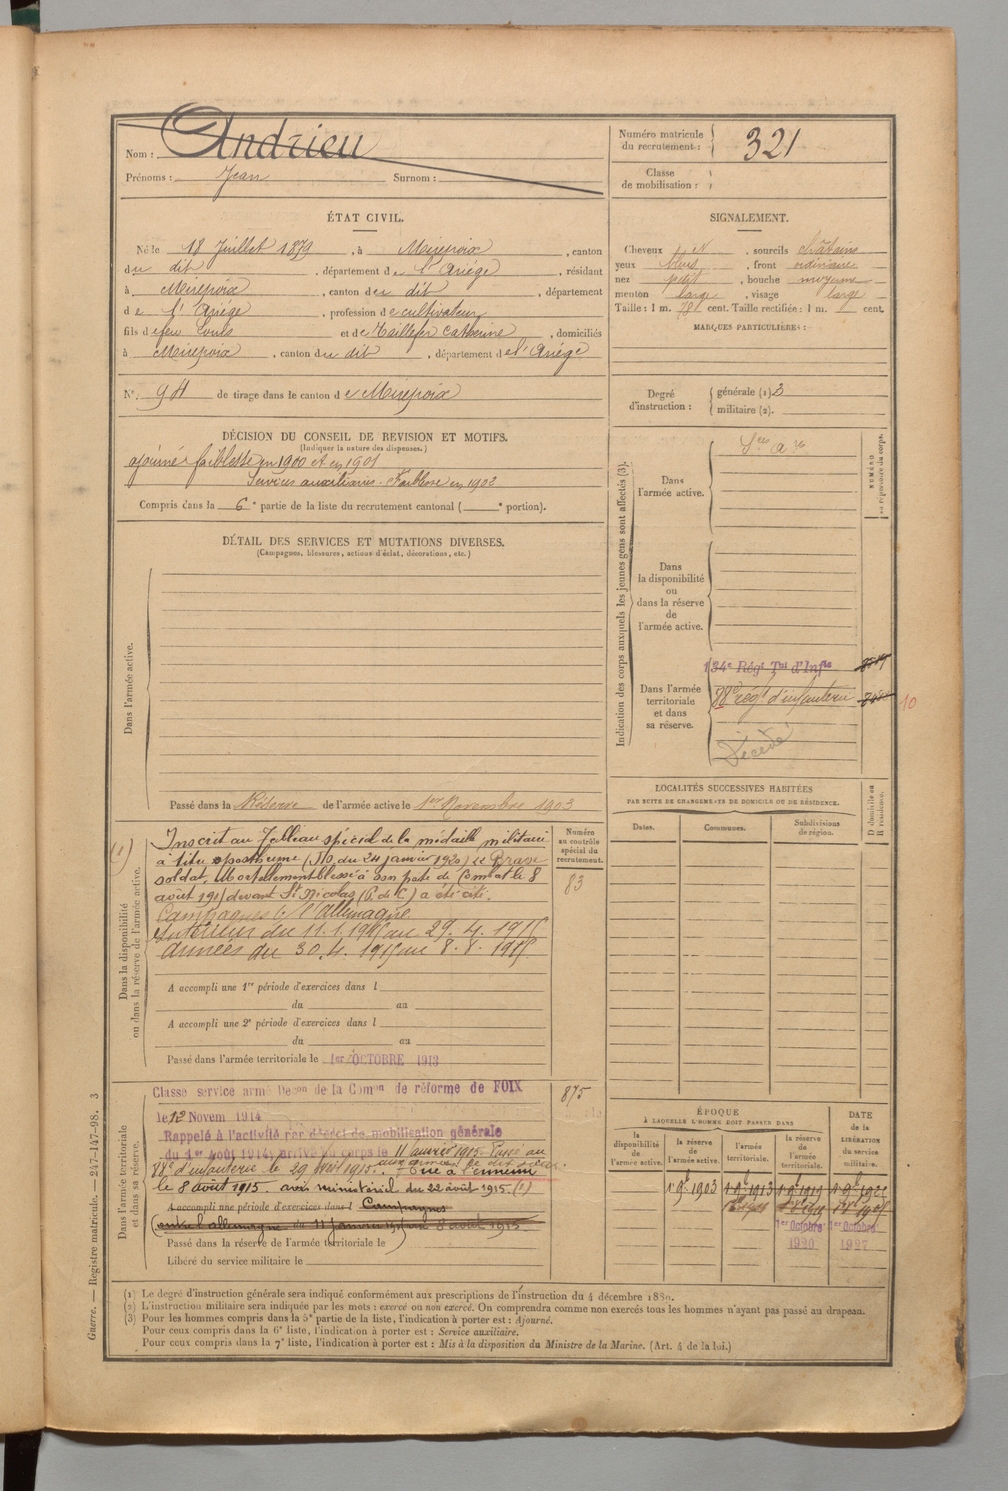 Nom : Andrieu
Prénoms : Jean Surnom :
Numéro matricule
du recrutement : 321
Classe
de mobilisation :
ÉTAT CIVIL.
Né le 18 Juillet 1879, à Mirepoix, canton
du dit, département de l'Ariége, résidant
à Mirepoix, canton du dit, département
de l'Ariége, profession de cultivateur
fils de feu Louis et de Taillefer Catherine, domiciliés
à Mirepoix, canton du dit, département de l'Ariége
N° 94 de tirage dans le canton de Mirepoix
SIGNALEMENT.
Cheveux , sourcils châtains
yeux bleus, front ordinaire
nez petit, bouche moyenne
menton large, visage large
Taille : 1 m. cent. Taille rectifiée : 1 m. cent.
MARQUES PARTICULIÈRES :
Degré
d'instruction :
générale (1) 3
militaire (2).
DÉCISION DU CONSEIL DE REVISION ET MOTIFS.
(Indiquer la nature des dispenses.)
ajourné faiblesse en 1900 et en 1901
Services auxiliaires. Faiblesse en 1902
Compris dans la 6e partie de la liste du recrutement cantonal ( e portion).
DÉTAIL DES SERVICES ET MUTATIONS DIVERSES.
(Campagnes, blessures, actions d'éclat, décorations, etc.)
Dans l'armée active.
Passé dans la Réserve de l'armée active le 1er Novembre 1903
Indication des corps auxquels les jeunes gens sont affectés (3).
NUMÉRO
au répertoire du corps.
Dans
l'armée active.
Dans
la disponibilité
ou
dans la réserve
de
l'armée active.
Dans l'armée
territoriale
et dans
sa réserve.
134e Régt Tal d'Infie
88e régt d'infanterie
10
Décédé
LOCALITÉS SUCCESSIVES HABITÉES
PAR SUITE DE CHANGEMENTS DE DOMICILE OU DE RÉSIDENCE.
Dates.
Communes.
Subdivisions
de région.
D domicile ou
R résidence.
Dans la disponibilité
ou dans la réserve de l'armée active.
Numéro
au contrôle
spécial du
recrutement.
83
(1) Inscrit au Tableau spécial de la médaille militaire
à titre posthume (JO du 24 janvier 1920) Brave
soldat. Mortellement blessé à son poste de Combat le 8
août 1915 devant St Nicolas (P. de C.) a été cité.
Campagnes c/ l'allemagne
Intérieur du 11.1.1915 au 29.4.1915
Armées du 30.4.1915 au 8.8.1915
A accompli une 1re période d'exercices dans l
du au
A accompli une 2e période d'exercices dans l
du au
Passé dans l'armée territoriale le 1er OCTOBRE 1913
Dans l'armée territoriale
et dans sa réserve.
875
Classé service armé Décon de la Comon de réforme de FOIX
le 12 Novem 1914
Rappelé à l'activité par décret de mobilisation générale
du 1er août 1914, arrivé au corps le 11 janvier 1915. Passé au
88e d'infanterie le 29 Avril 1915. Tué à l'ennemi
le 8 août 1915. avis ministériel du 22 août 1915. (1)
A accompli une période d'exercices dans l Campagnes
contre l'allemagne du 11 janvier 1915 au 8 août 1915
Passé dans la réserve de l'armée territoriale le
Libéré du service militaire le
ÉPOQUE
À LAQUELLE L'HOMME DOIT PASSER DANS
DATE
de la
LIBÉRATION
du service
militaire.
la
disponibilité
de
l'armée active.
la réserve
de
l'armée active.
l'armée
territoriale.
la réserve
de
l'armée
territoriale.
1er Octobre 1er Octobre
1920 1927
(1) Le degré d'instruction générale sera indiqué conformément aux prescriptions de l'instruction du 4 décembre 1889.
(2) L'instruction militaire sera indiquée par les mots : exercé ou non exercé. On comprendra comme non exercés tous les hommes n'ayant pas passé au drapeau.
(3) Pour les hommes compris dans la 5e partie de la liste, l'indication à porter est : Ajourné.
Pour ceux compris dans la 6e liste, l'indication à porter est : Service auxiliaire.
Pour ceux compris dans la 7e liste, l'indication à porter est : Mis à la disposition du Ministre de la Marine. (Art. 4 de la loi.)
Guerre. — Registre matricule. — 247-147-98. 3